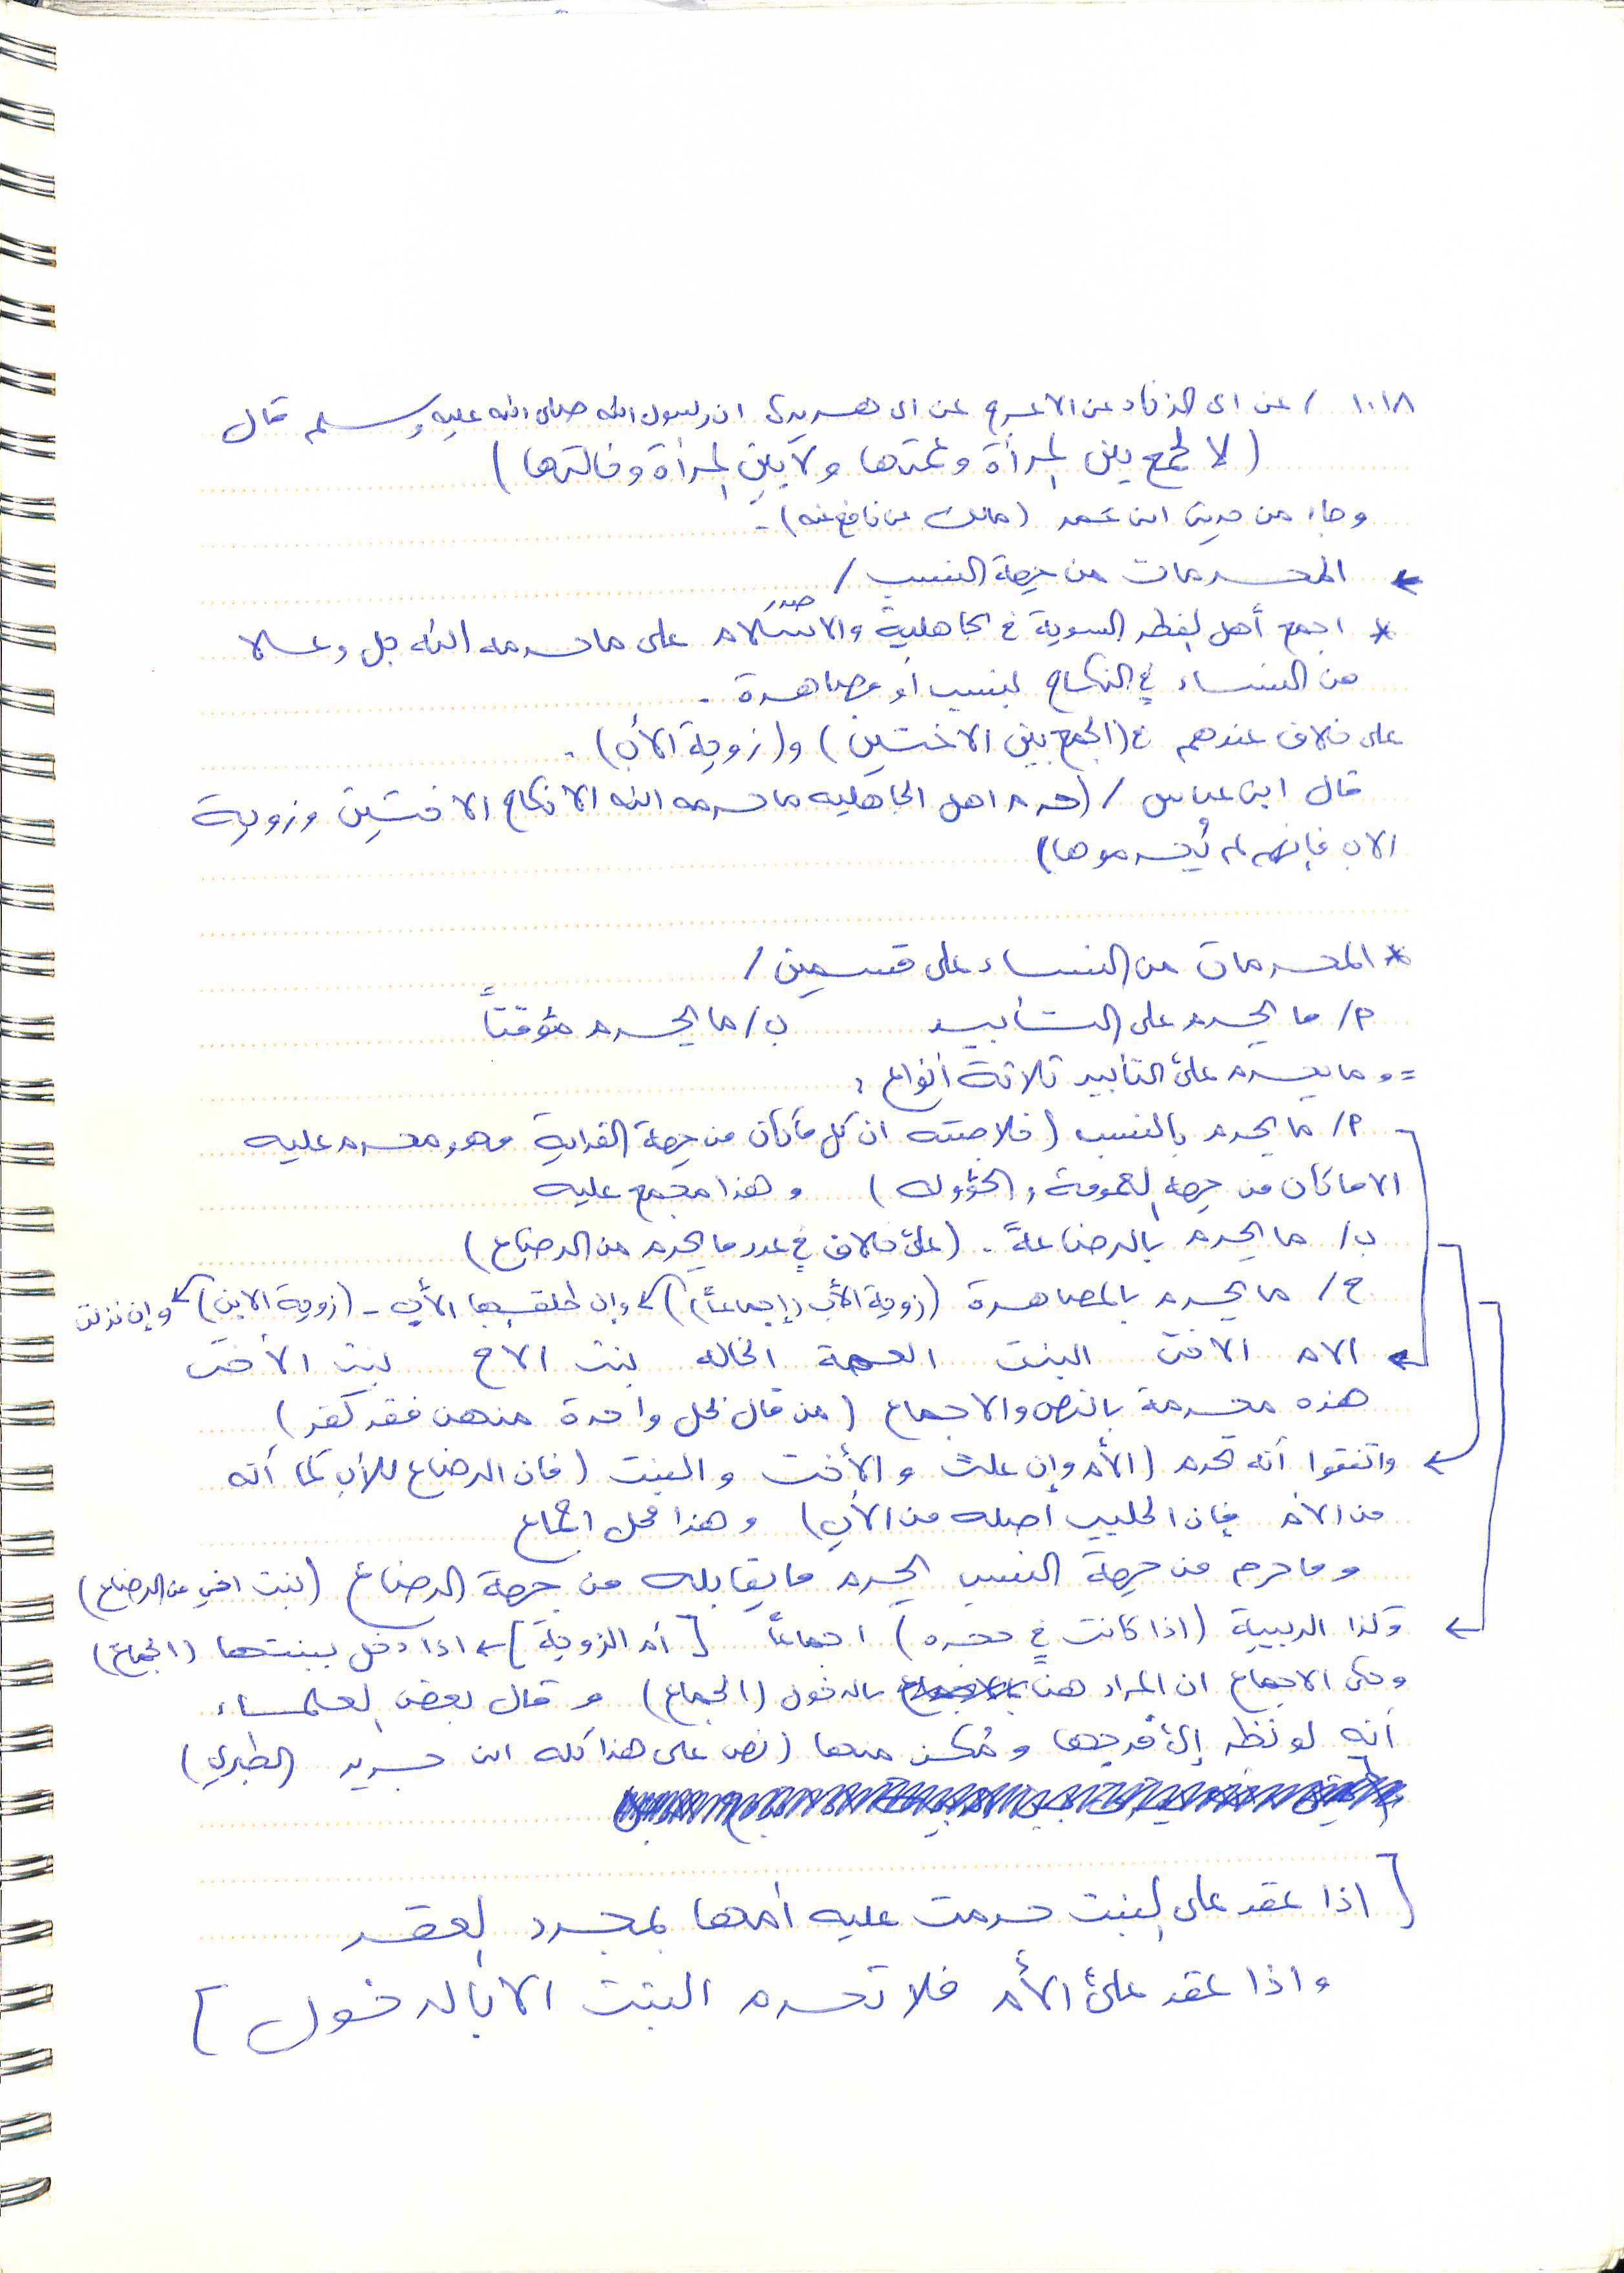 ١٠١٨ / عن ابي الزناد عن الاعرج عن ابي هريرة ان رسول الله صلى الله عليه وسلم قال
( لا يجمع بين المرأة وعمتها ولا بين المرأة وخالتها )
وجاء من حديث ابن عمر (مالك عن نافع عنه) -
← المحرمات من جهة النسب /
* اجمع أهل الفطر السوية في الجاهلية وصدر الاسلام على ما حرمه الله جل وعلا
من النساء في النكاح لنسب أو مصاهرة .
على خلاف عندهم في (الجمع بين الاختين) و(زوجة الأب) .
قال ابن عباس / (حرم اهل الجاهليه ما حرمه الله الا نكاح الاختين وزوجة
الاب فإنهم لم يُحرموها)
* المحرمات من النساء على قسمين /
م/ ما يحرم على التأبيد ب/ ما يحرم مؤقتاً
= وما يحرم على التأبيد ثلاثة أنواع :
م/ ما يحرم بالنسب (خلاصته ان كل ما كان من جهة القرابة فهو محرم عليه
الا ما كان من جهة العمومة والخؤوله ) وهذا مجمع عليه
ب/ ما يحرم بالرضاعة . (على خلاف في عدد ما يحرم من الرضاع)
ج/ ما يحرم بالمصاهرة (زوجة الأب (إجماعاً)) ← وإن طلقها الأب - (زوجة الابن) ← وإن نزلت
← الام الاخت البنت العمة الخاله بنت الاخ بنت الأخت
هذه محرمة بالنص والاجماع (من قال بحل واحدة منهن فقد كفر)
← واتفقوا أنه تحرم (الأم وإن علت والأخت والبنت (فان الرضاع للأب كما أنه
من الأم فإن الحليب أصله من الأب) وهذا محل اجماع
وما حرم من جهة النسب يحرم ما يقابله من جهة الرضاع (بنت اخي من الرضاع)
← وكذا الربيبة (اذا كانت في حجره) اجماعاً [أم الزوجة] ← اذا دخل ببنتها (الجماع)
وحكى الاجماع ان المراد هنا بالدخول (الجماع) وقال بعض العلماء
أنه لو نظر إلى فرجها ومُكن منها (نص على هذا كله ابن جرير الطبري)
[ اذا عقد على البنت حرمت عليه أمها بمجرد العقد
واذا عقد على الأم فلا تحرم البنت الا بالدخول ]